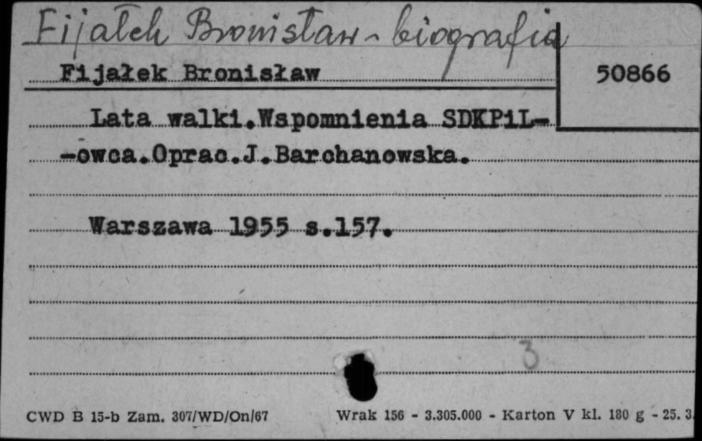 Fijałek Bronisław - biografia
Fijałek Bronisław
50866
Lata walki.Wspomnienia SDKPiL-
-owca.Oprac.J.Barchanowska.
Warszawa 1955 s.157.
3
CWD B 15-b Zam. 307/WD/On/67
Wrak 156 - 3.305.000 - Karton V kl. 180 g - 25. 3.